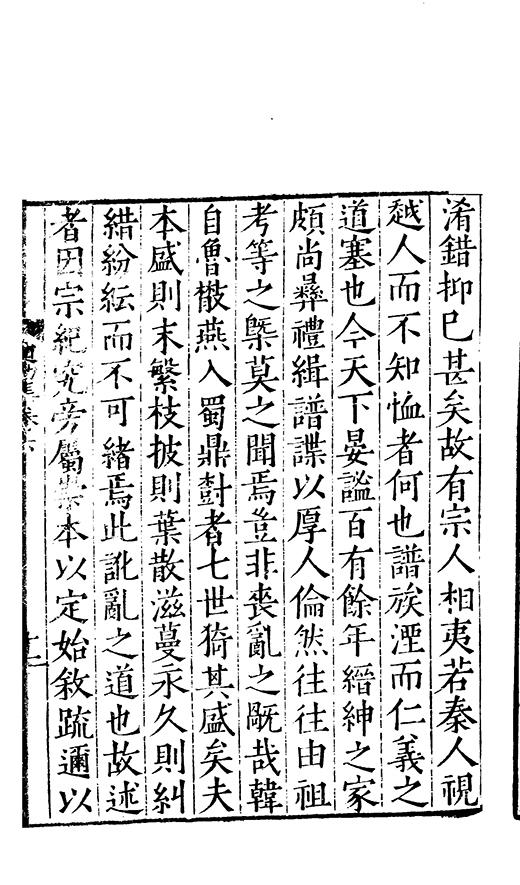 淆錯抑已甚矣故有宗人相夷若秦人視
越人而不知恤者何也譜族湮而仁義之
道塞也今天下晏謐百有餘年縉紳之家
頗尚彝禮緝譜諜以厚人倫然往往由祖
考等之槩莫之聞焉豈非喪亂之既哉韓
自魯散燕入蜀鼎對者七世猗其盛矣夫
本盛則末繁枝披則葉散滋蔓永久則糾
繆紛紜而不可緒焉此訛亂之道也故述
者因宗紀究旁屬本以定始敘疏邇以